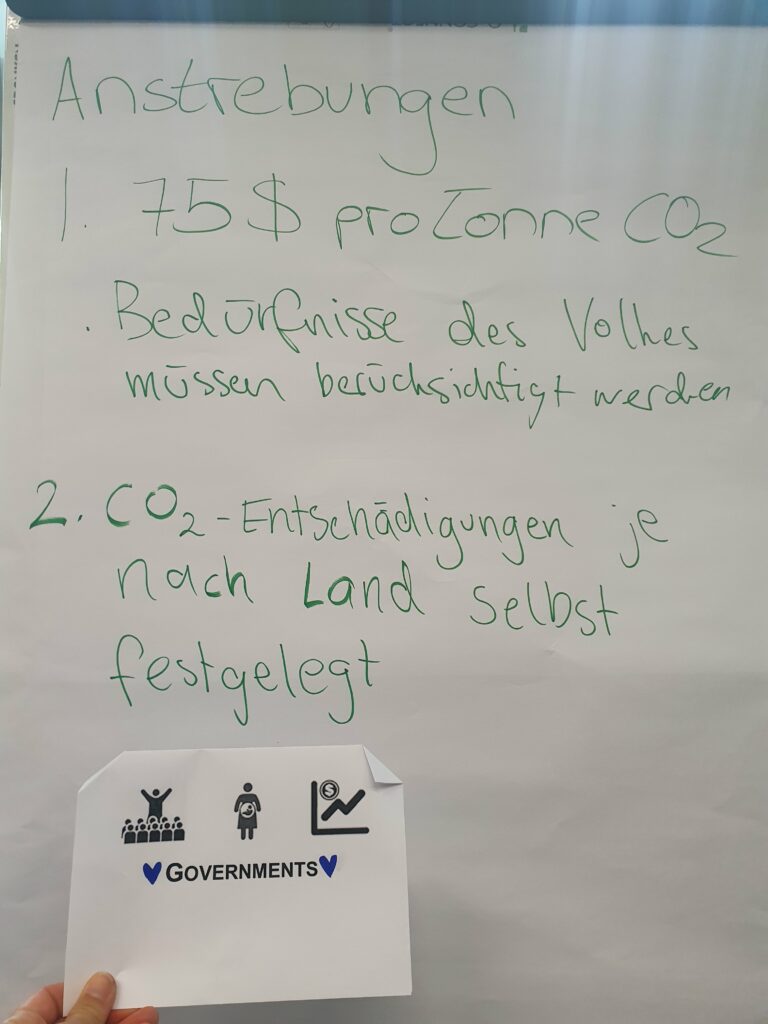 Anstrebungen
1. 75$ pro Tonne CO2
. Bedürfnisse des Volkes
müssen berücksichtigt werden
2. CO2-Entschädigungen je
nach Land selbst
festgelegt
$
GOVERNMENTS